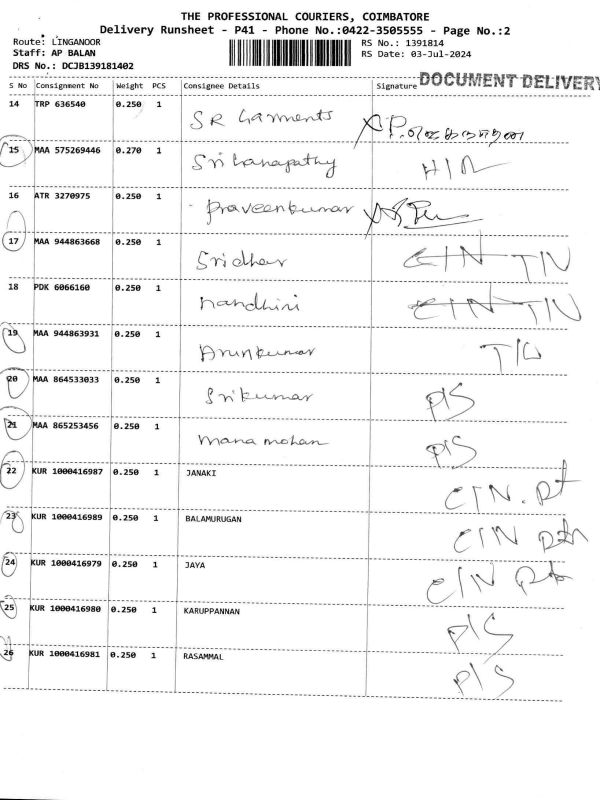 THE PROFESSIONAL COURIERS, COIMBATORE
Delivery Runsheet - P41 - Phone No.:0422-3505555 - Page No.:2
Route: LINGANOOR RS No.: 1391814
Staff: AP BALAN RS Date: 03-Jul-2024
DRS No.: DCJB139181402
S No Consignment No Weight PCS Consignee Details Signature DOCUMENT DELIVERY
14 TRP 636540 0.250 1 SR Garments
15 MAA 575269446 0.270 1
16 ATR 3270975 0.250 1 Praveenkumar
17 MAA 944863668 0.250 1 Sridhar CIN TIN
18 PDK 6066160 0.250 1 nandhini CIN TIN
19 MAA 944863931 0.250 1 Arunkumar
20 MAA 864533033 0.250 1 Srikumar P/S
21 MAA 865253456 0.250 1 mana mohan P/S
22 KUR 1000416987 0.250 1 JANAKI
23 KUR 1000416989 0.250 1 BALAMURUGAN
24 KUR 1000416979 0.250 1 JAYA
25 KUR 1000416980 0.250 1 KARUPPANNAN P/S
26 KUR 1000416981 0.250 1 RASAMMAL P/S